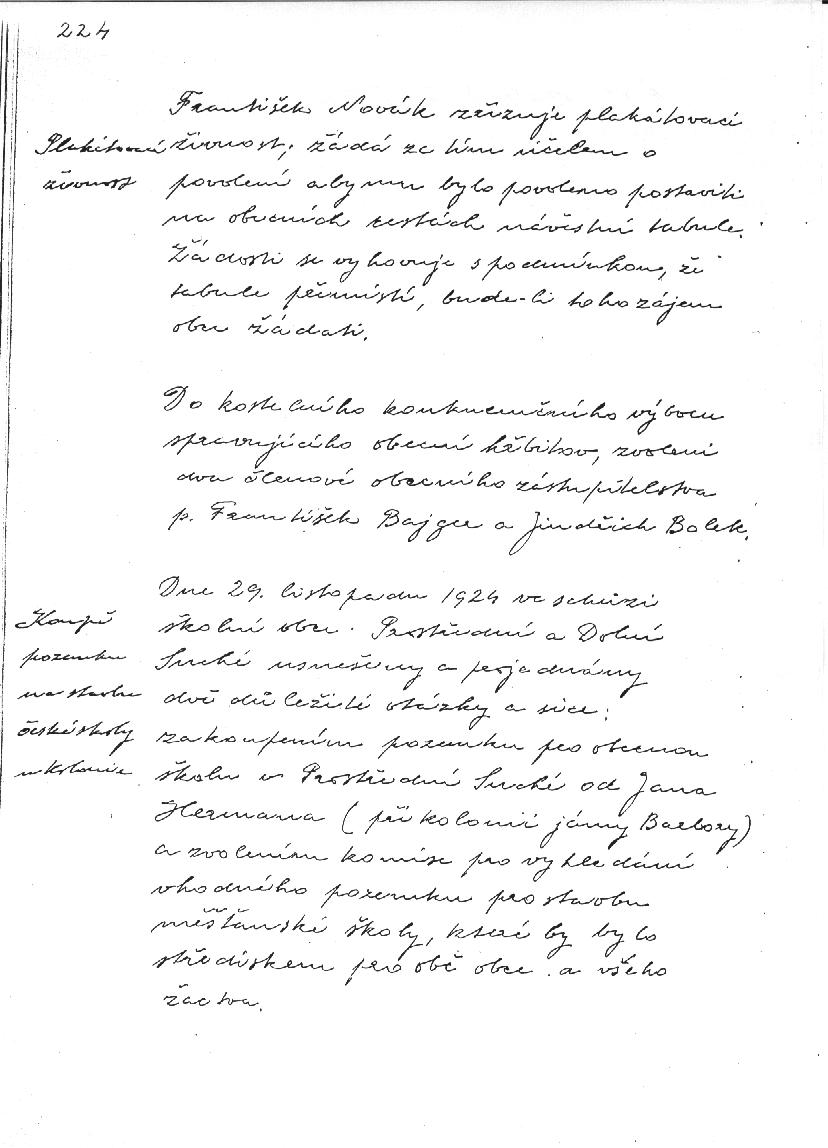 224
František Novák zřizuje plakátovací
Plakátovací
živnost, žádá za tím účelem o
živnost
povolení aby mu bylo povoleno postaviti
na obecních cestách návěstní tabule.
Žádosti se vyhovuje s podmínkou, že
tabule přemístí, bude-li toho zájem
obce žádati.
Do kostelního konkurenčního výboru
spravujícího obecní hřbitov, zvoleni
dva členové obecního zastupitelstva
p. František Bajger a Jindřich Bolek.
Dne 29. listopadu 1924 ve schůzi
Koupě
školní obce. Prostřední a Dolní
pozemku
Suché usnešeny a projednány
na stavbu
dvě důležité otázky a sice:
české školy
zakoupením pozemku pro obecnou
u kolonie
školu v Prostřední Suché od Jana
Hermana (při kolonii jámy Barbory)
a zvolením komise pro vyhledání
vhodného pozemku pro stavbu
měšťanské školy, které by bylo
střediskem pro obě obce. a všeho
žactva.